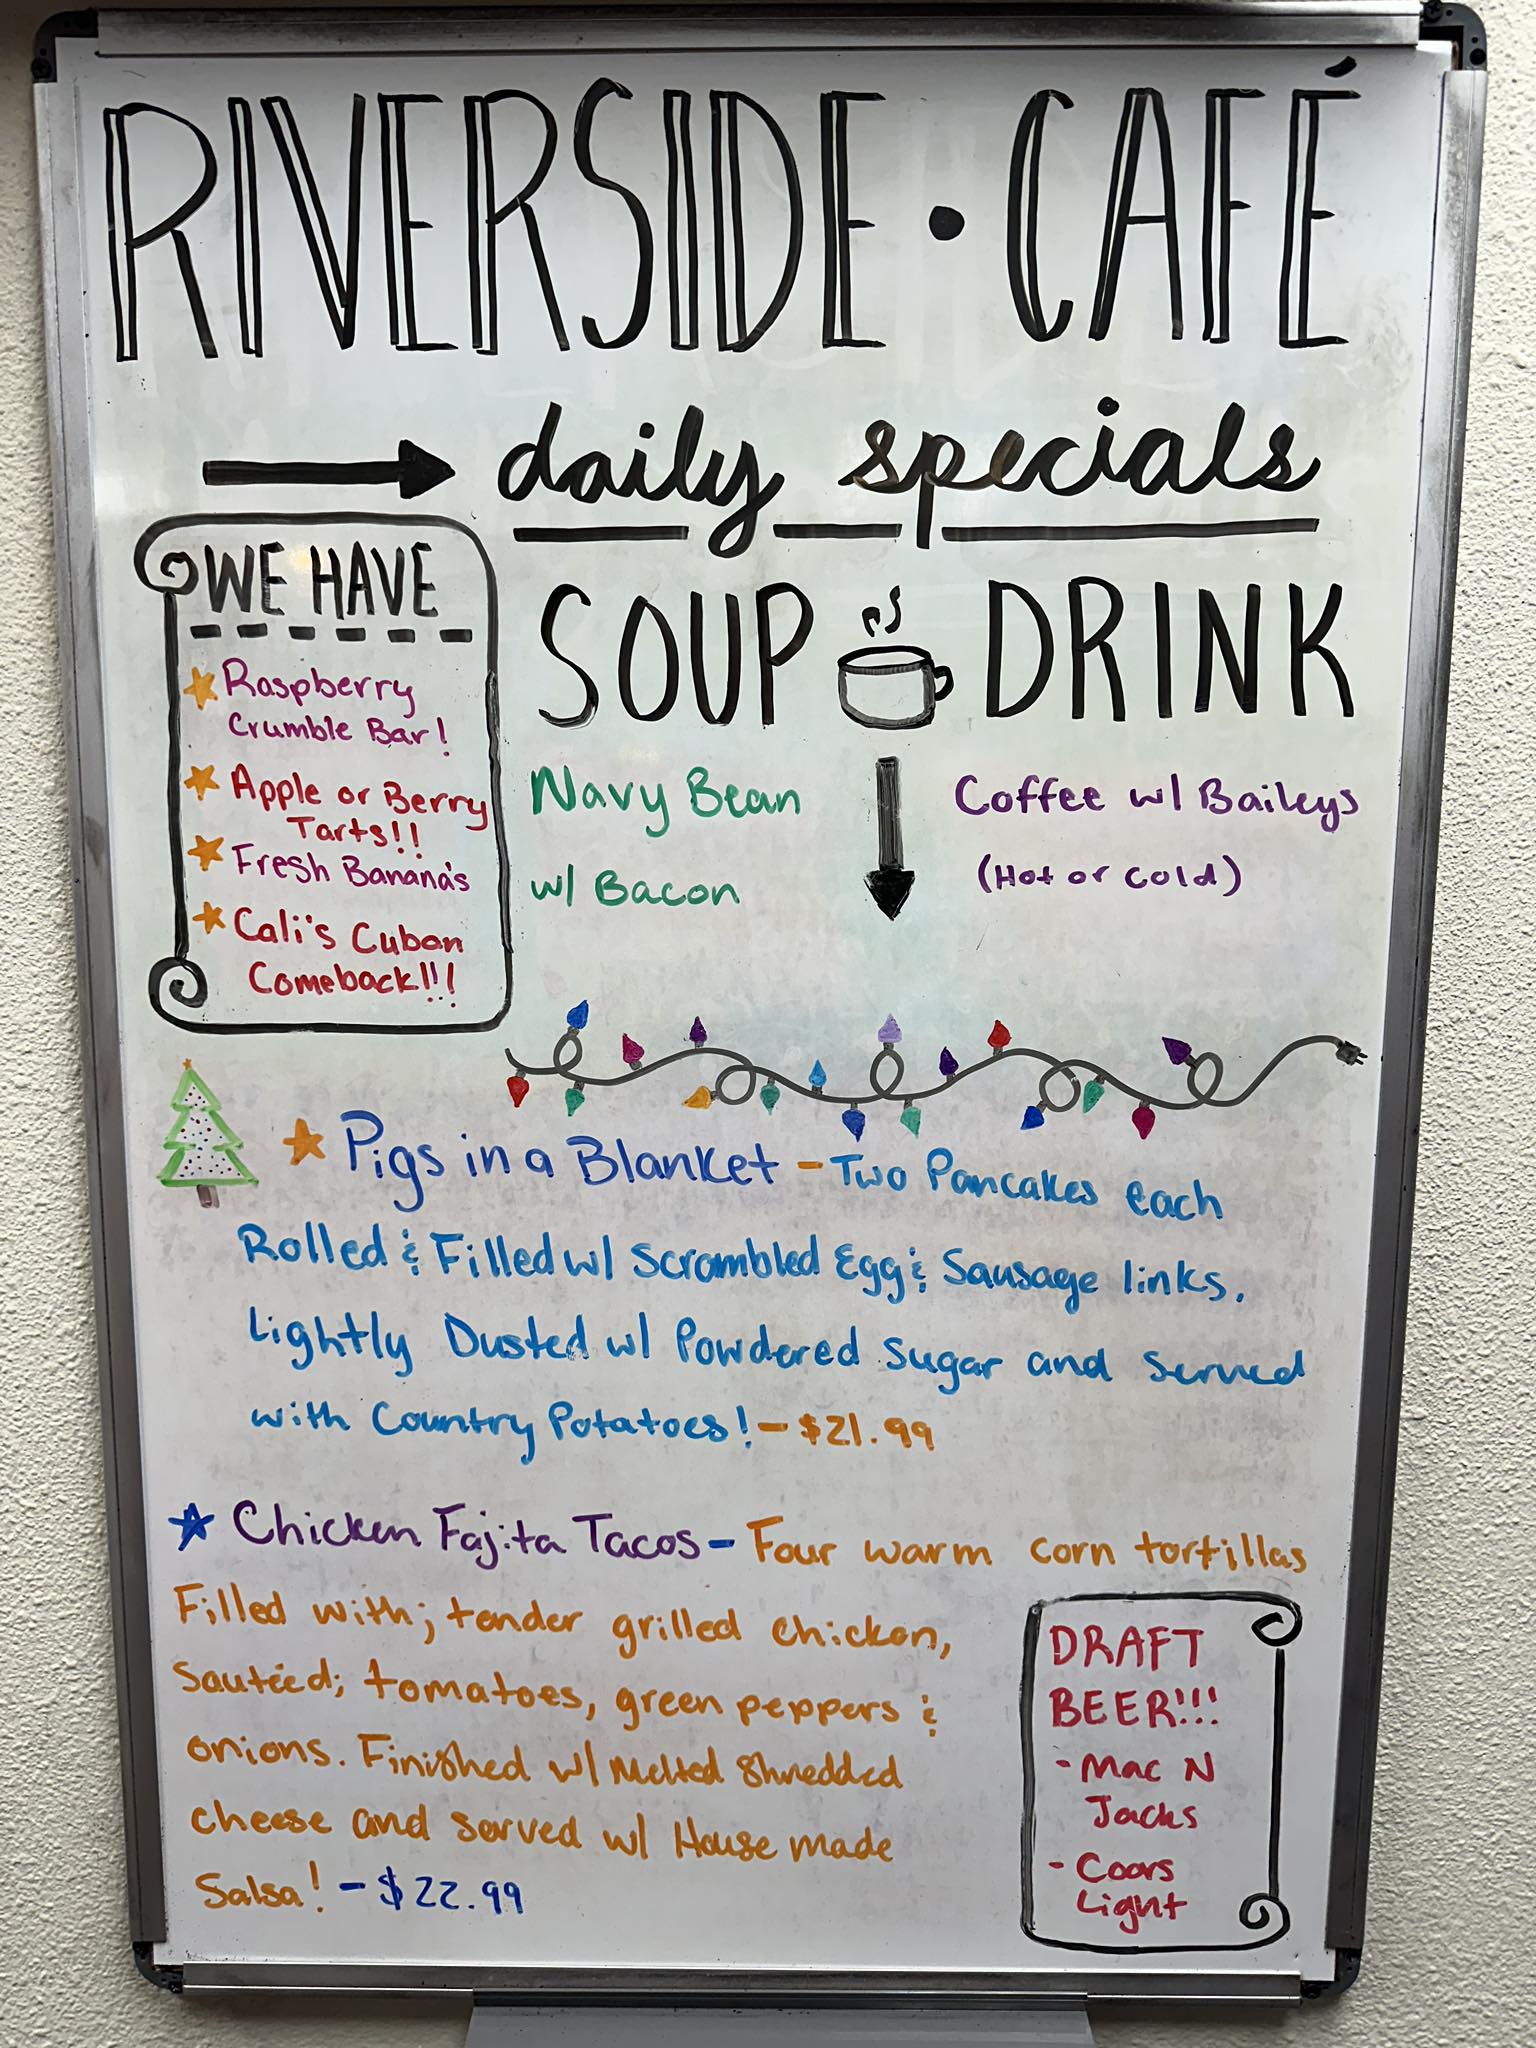 RIVERSIDE • CAFÉ
daily specials
WE HAVE
Raspberry
Crumble Bar!
Apple or Berry
Tarts!!
Fresh Banana's
Cali's Cuban
Comeback!!!
SOUP
Navy Bean
w/ Bacon
DRINK
Coffee w/ Baileys
(Hot or Cold)
Pigs in a Blanket - Two Pancakes each
Rolled & Filled w/ Scrambled Egg & Sausage links.
Lightly Dusted w/ Powdered Sugar and Served
with Country Potatoes! - $21.99
Chicken Fajita Tacos - Four warm corn tortillas
Filled with; tender grilled chicken,
Sautéed; tomatoes, green peppers &
onions. Finished w/ Melted Shredded
cheese and served w/ House made
Salsa! - $22.99
DRAFT
BEER!!!
- Mac N
Jacks
- Coors
Light